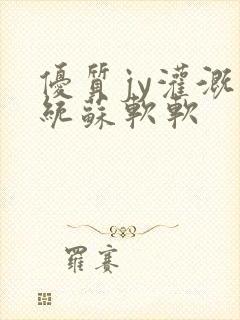 優質jy灌溉
統蘇軟軟
羅賽